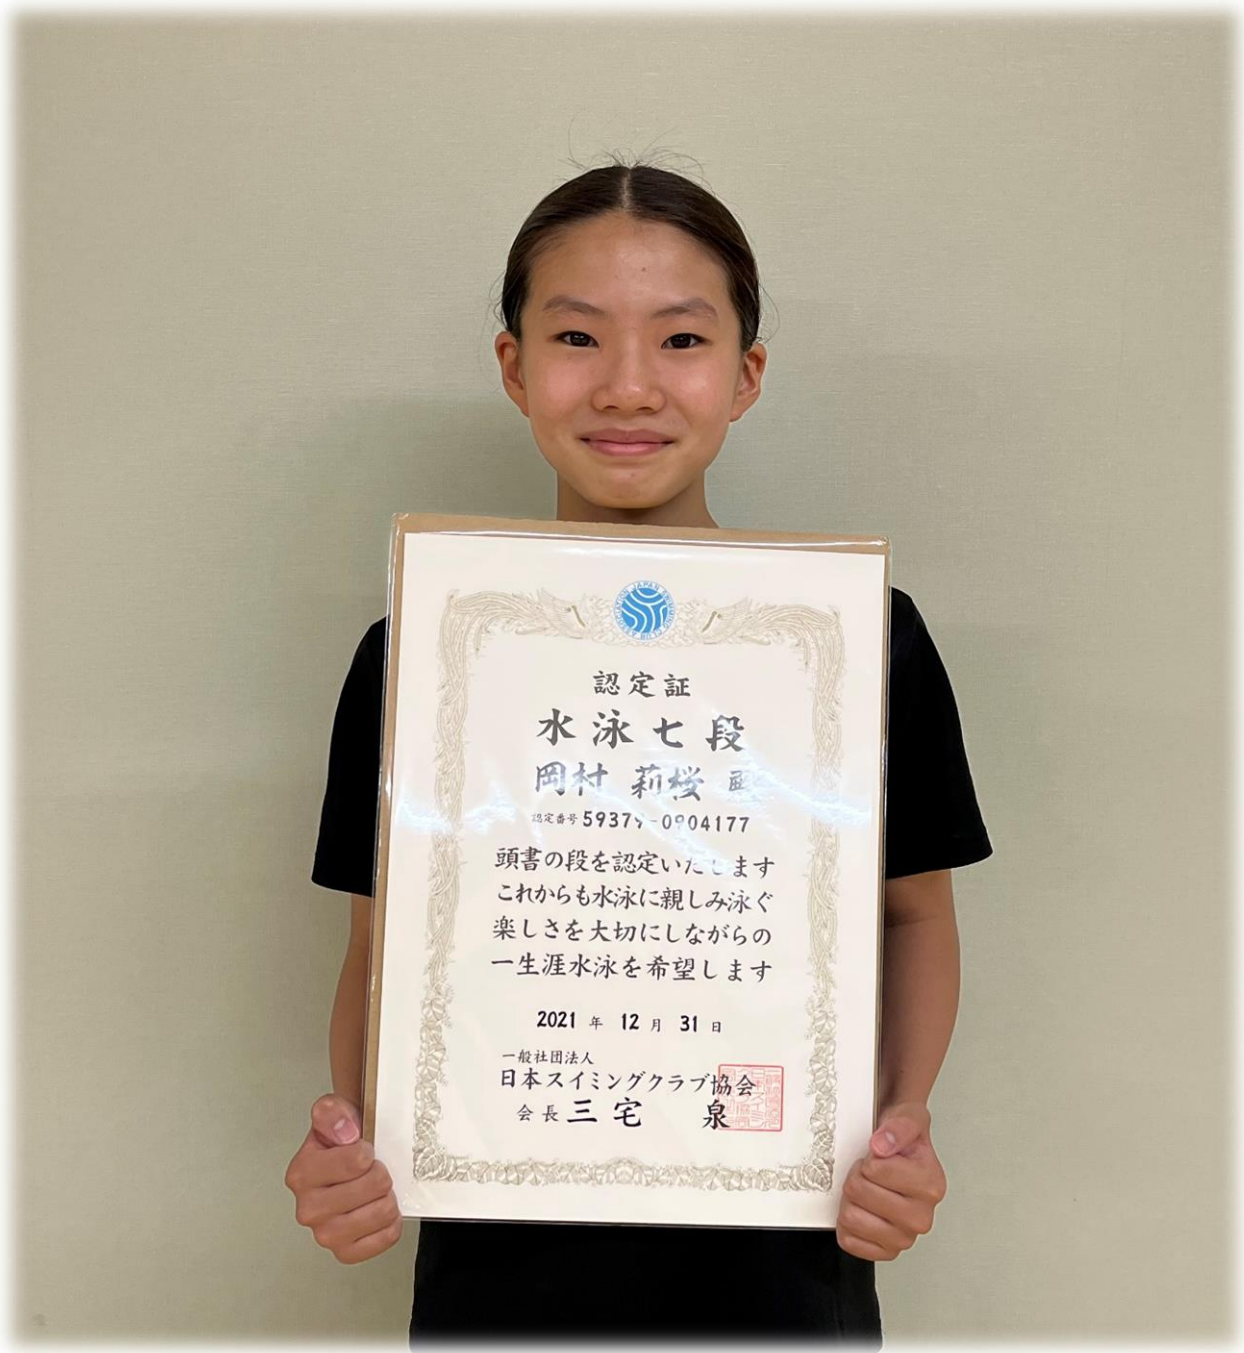 認定証
水泳七段
岡村 莉桜 殿
認定番号 59379-0904177
頭書の段を認定いたします
これからも水泳に親しみ泳ぐ
楽しさを大切にしながらの
一生涯水泳を希望します
2021 年 12 月 31 日
一般社団法人
日本スイミングクラブ協会
会長 三宅 泉